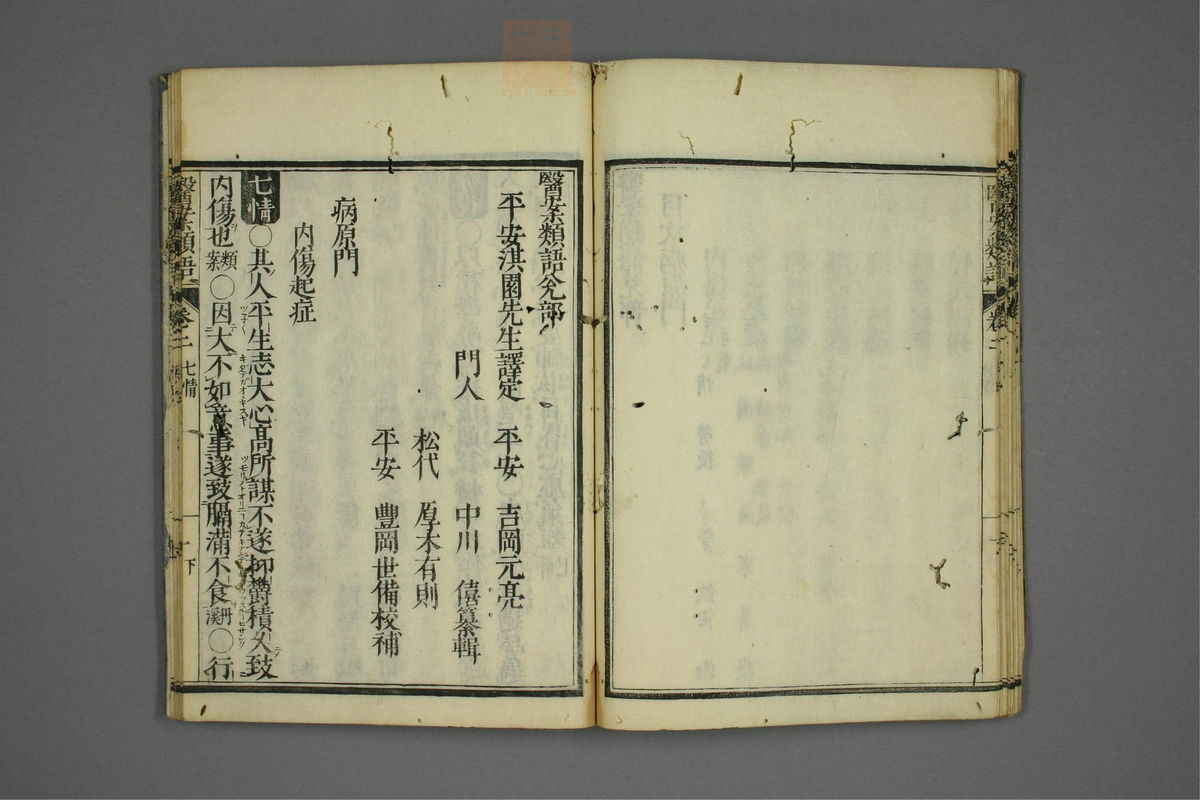 醫案類語
卷二
醫案類語
平安淇園先生譯定
平安 吉岡元亮
門人 中川 僖纂輯
松代 厚木有則
平安 豐岡世備校補
病原門
內傷起症
七情○其人平生志大心高所謀不遂抑鬱積久致
內傷也類案○因大不如意事遂致膈滿不食○行
醫案類語
卷二
七情
下